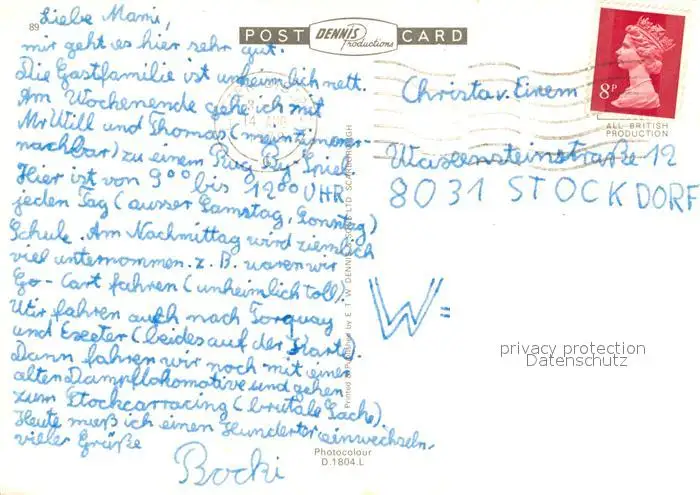 89
POST DENNIS Productions CARD
Liebe Mami,
mir geht es hier sehr gut.
Die Gastfamilie ist unheimlich nett.
Am Wochenende gehe ich mit
Mr Will und Thomas (mein Zimmer-
nachbar) zu einem Rug By Spiel.
Hier ist von 9°° bis 12°° UHR
jeden Tag (ausser Samstag, Sonntag)
Schule. Am Nachmittag wird ziemlich
viel unternommen. z. B. waren wir
Go-Cart fahren (unheimlich toll).
Wir fahren auch nach Torquay
und Exeter (beides auf der Kart).
Dann fahren wir noch mit einer
alten Dampflokomotive und gehen
zum Stockcarracing (brutale Sache).
Heute muß ich einen Hunderter einwechseln.
viele Grüße
Bocki
Printed & Published by E. T. W. DENNIS & SONS LTD SCARBOROUGH
Photocolour
D.1804.L
8P
ALL-BRITISH
PRODUCTION
Christa v. Einem
Straße 12
8031 STOCKDORF
W=
privacy protection
Datenschutz